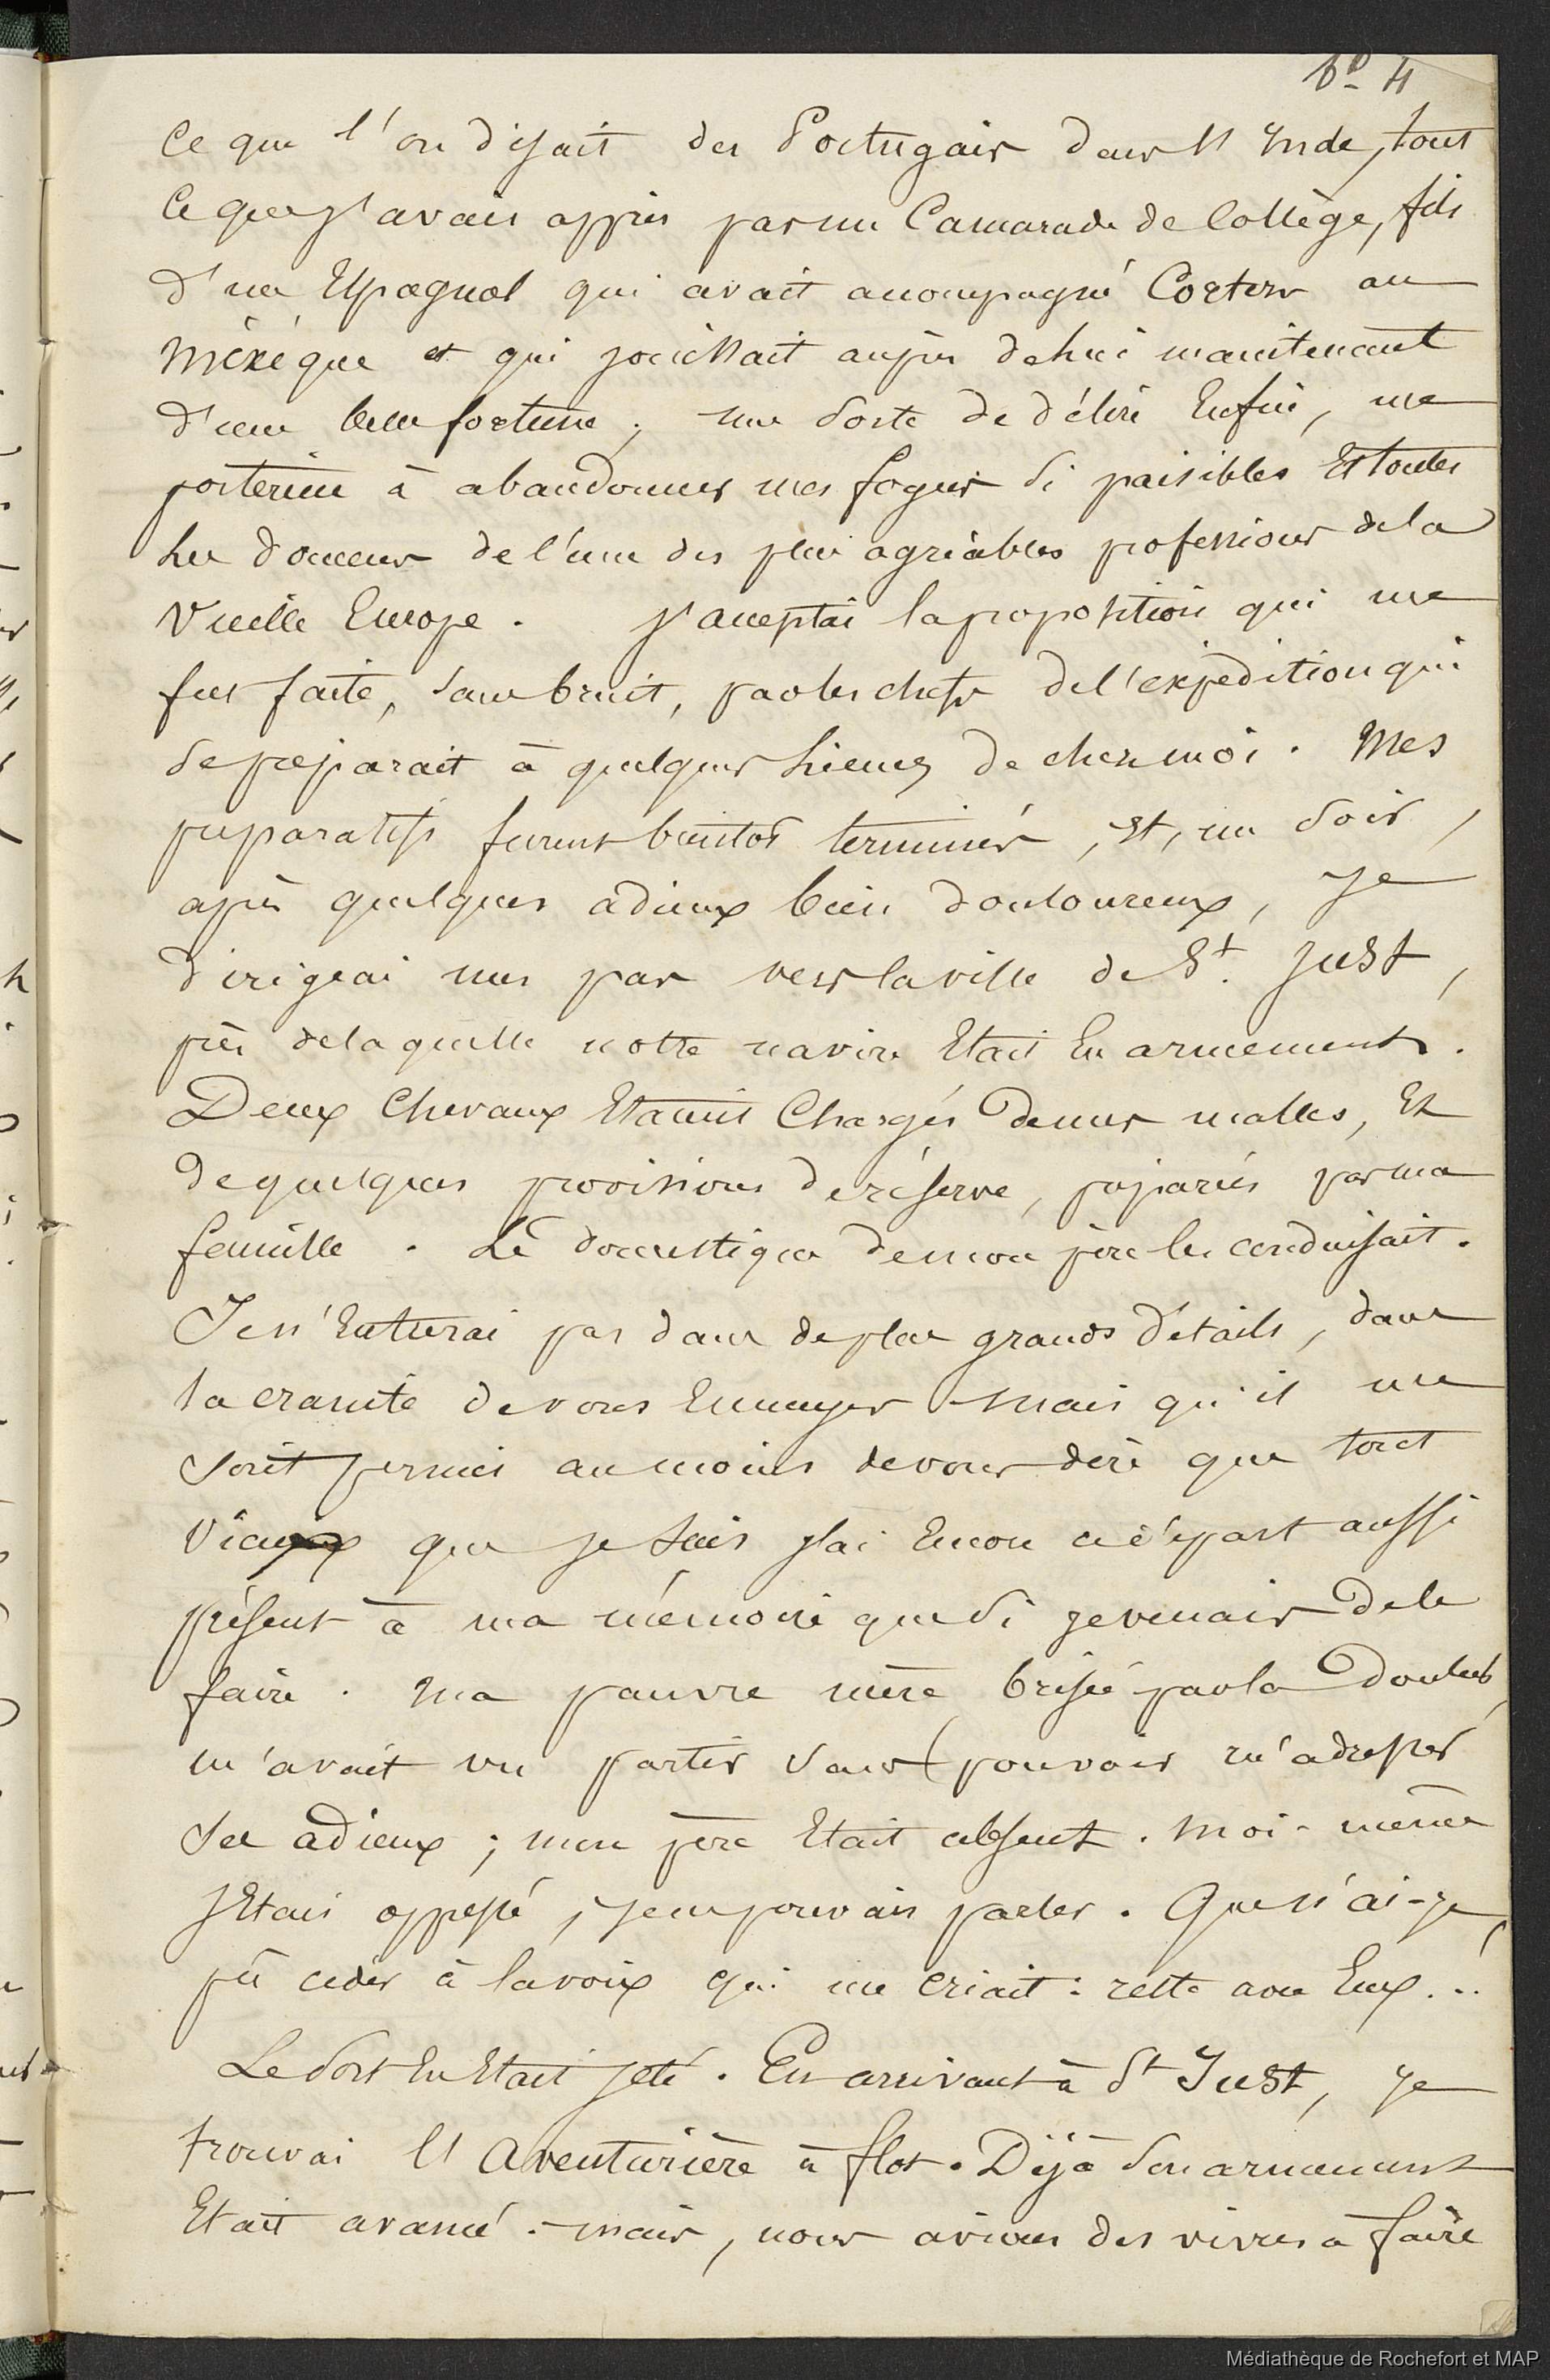 fo 4
Ce que l'on disait des Portugais dans l'Inde, tout
Ce que j'avais appris par un Camarade de Collège, fils
d'un Espagnol qui avait accompagné Cortez au
Méxique et qui jouissait auprès de lui maintenant
d'une belle fortune ; une Sorte de délire Enfin, me
portèrent à abandonner mes foyers Si paisibles Et toutes
Les douceurs de l'une des plus agréables professions de la
Vieille Europe. J'acceptai la proposition qui me
fut faite, Sans bruit, par les chefs de l'expédition qui
Se préparait à quelques Lieues de chez moi. Mes
préparatifs furent bientôt terminés, Et, un Soir,
après quelques adieux bien douloureux, Je
dirigeai mes pas vers la ville de St. Just,
près de laquelle notre navire Etait En armement.
Deux Chevaux Etaient Chargés de mes malles, Et
de quelques provisions de réserve, préparées par ma
famille. Le domestique de mon père les conduisait.
Je n'Entrerai pas dans de plus grands détails, dans
la crainte de vous Ennuyer mais qu'il me
Soit permis au moins de vous dire que tout
Vieux que je Suis j'ai Encore ce départ aussi
présent à ma mémoire que Si je venais de le
faire. Ma pauvre mère, brisée par la Douleur,
m'avait vu partir Sans pouvoir m'adresser
Ses adieux ; mon père Etait absent. Moi-même
J'Etais oppressé, je ne pouvais parler. Que n'ai-je,
pû céder à la voix qui me criait : reste avec Eux...
Le Sort En Etait jeté. En arrivant à St Just, je
trouvai l'Aventurière à flot. Déjà Son armement
Etait avancé. mais, nous avions des vivres à faire
Médiathèque de Rochefort et MAP